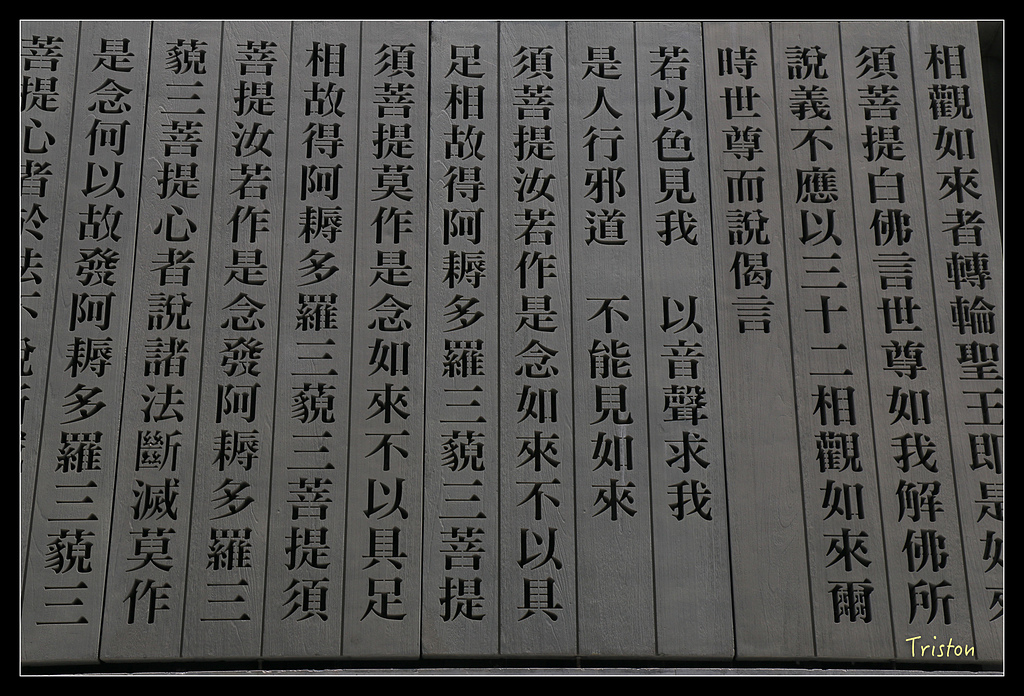 相觀如來者轉輪聖王即是如來
須菩提白佛言世尊如我解佛所
說義不應以三十二相觀如來爾
時世尊而說偈言
若以色見我　以音聲求我
是人行邪道　不能見如來
須菩提汝若作是念如來不以具
足相故得阿耨多羅三藐三菩提
須菩提莫作是念如來不以具足
相故得阿耨多羅三藐三菩提須
菩提汝若作是念發阿耨多羅三
藐三菩提心者說諸法斷滅莫作
是念何以故發阿耨多羅三藐三
菩提心者於法不說斷
Triston